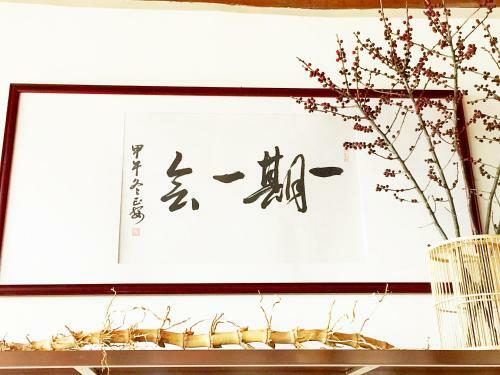 一期一会
甲午冬